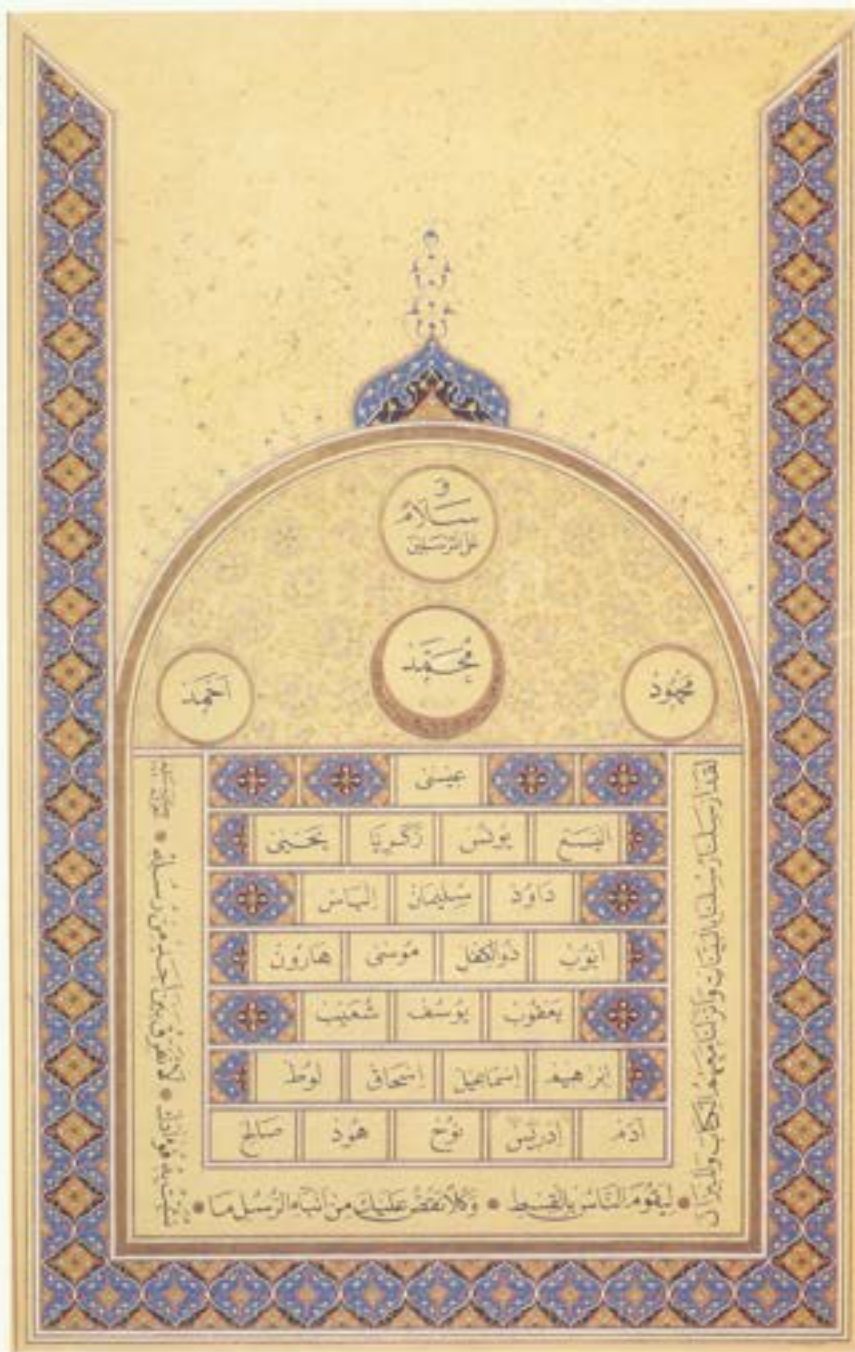 و
سلام
على المرسلين
محمد
محمود
احمد
عيسى
اليسع يونس زكريا يحيى
داود سليمان الياس
ايوب ذوالكفل موسى هارون
يعقوب يوسف شعيب
ابرهيم اسماعيل اسحاق لوط
ادم ادريس نوح هود صالح
لقد ارسلنا رسلنا بالبينات وانزلنا معهم الكتاب والميزان
ليقوم الناس بالقسط وكلا نقص عليك من انباء الرسل ما
نثبت به فؤادك لا نفرق بين احد من رسله